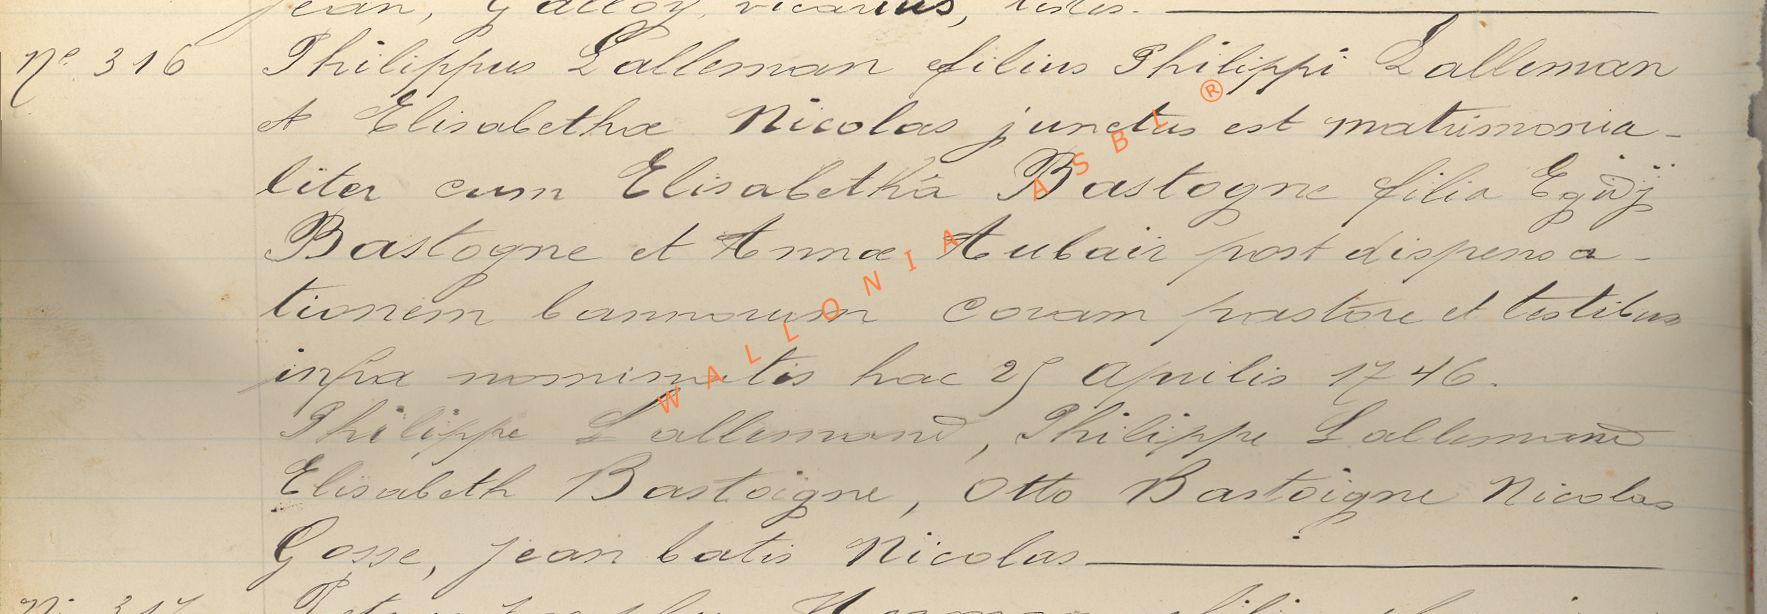 jean, Galloy, vicarius, testes.
No. 316 Philippus Lalleman filius Philippi Lalleman
et Elisabethæ Nicolas junctus est matrimonia-
liter cum Elisabethâ Bastogne filia Egidij
Bastogne et Annæ Aubair post dispensa-
tionem bannorum coram pastore et testibus
infra nominatis hac 25 aprilis 1746.
Philippe Lallemand, Philippe Lallemand
Elisabeth Bastoigne, Otto Bastoigne Nicolas
Gosse, jean batis Nicolas
No. 317 filius
WALLONIA ASBL ®